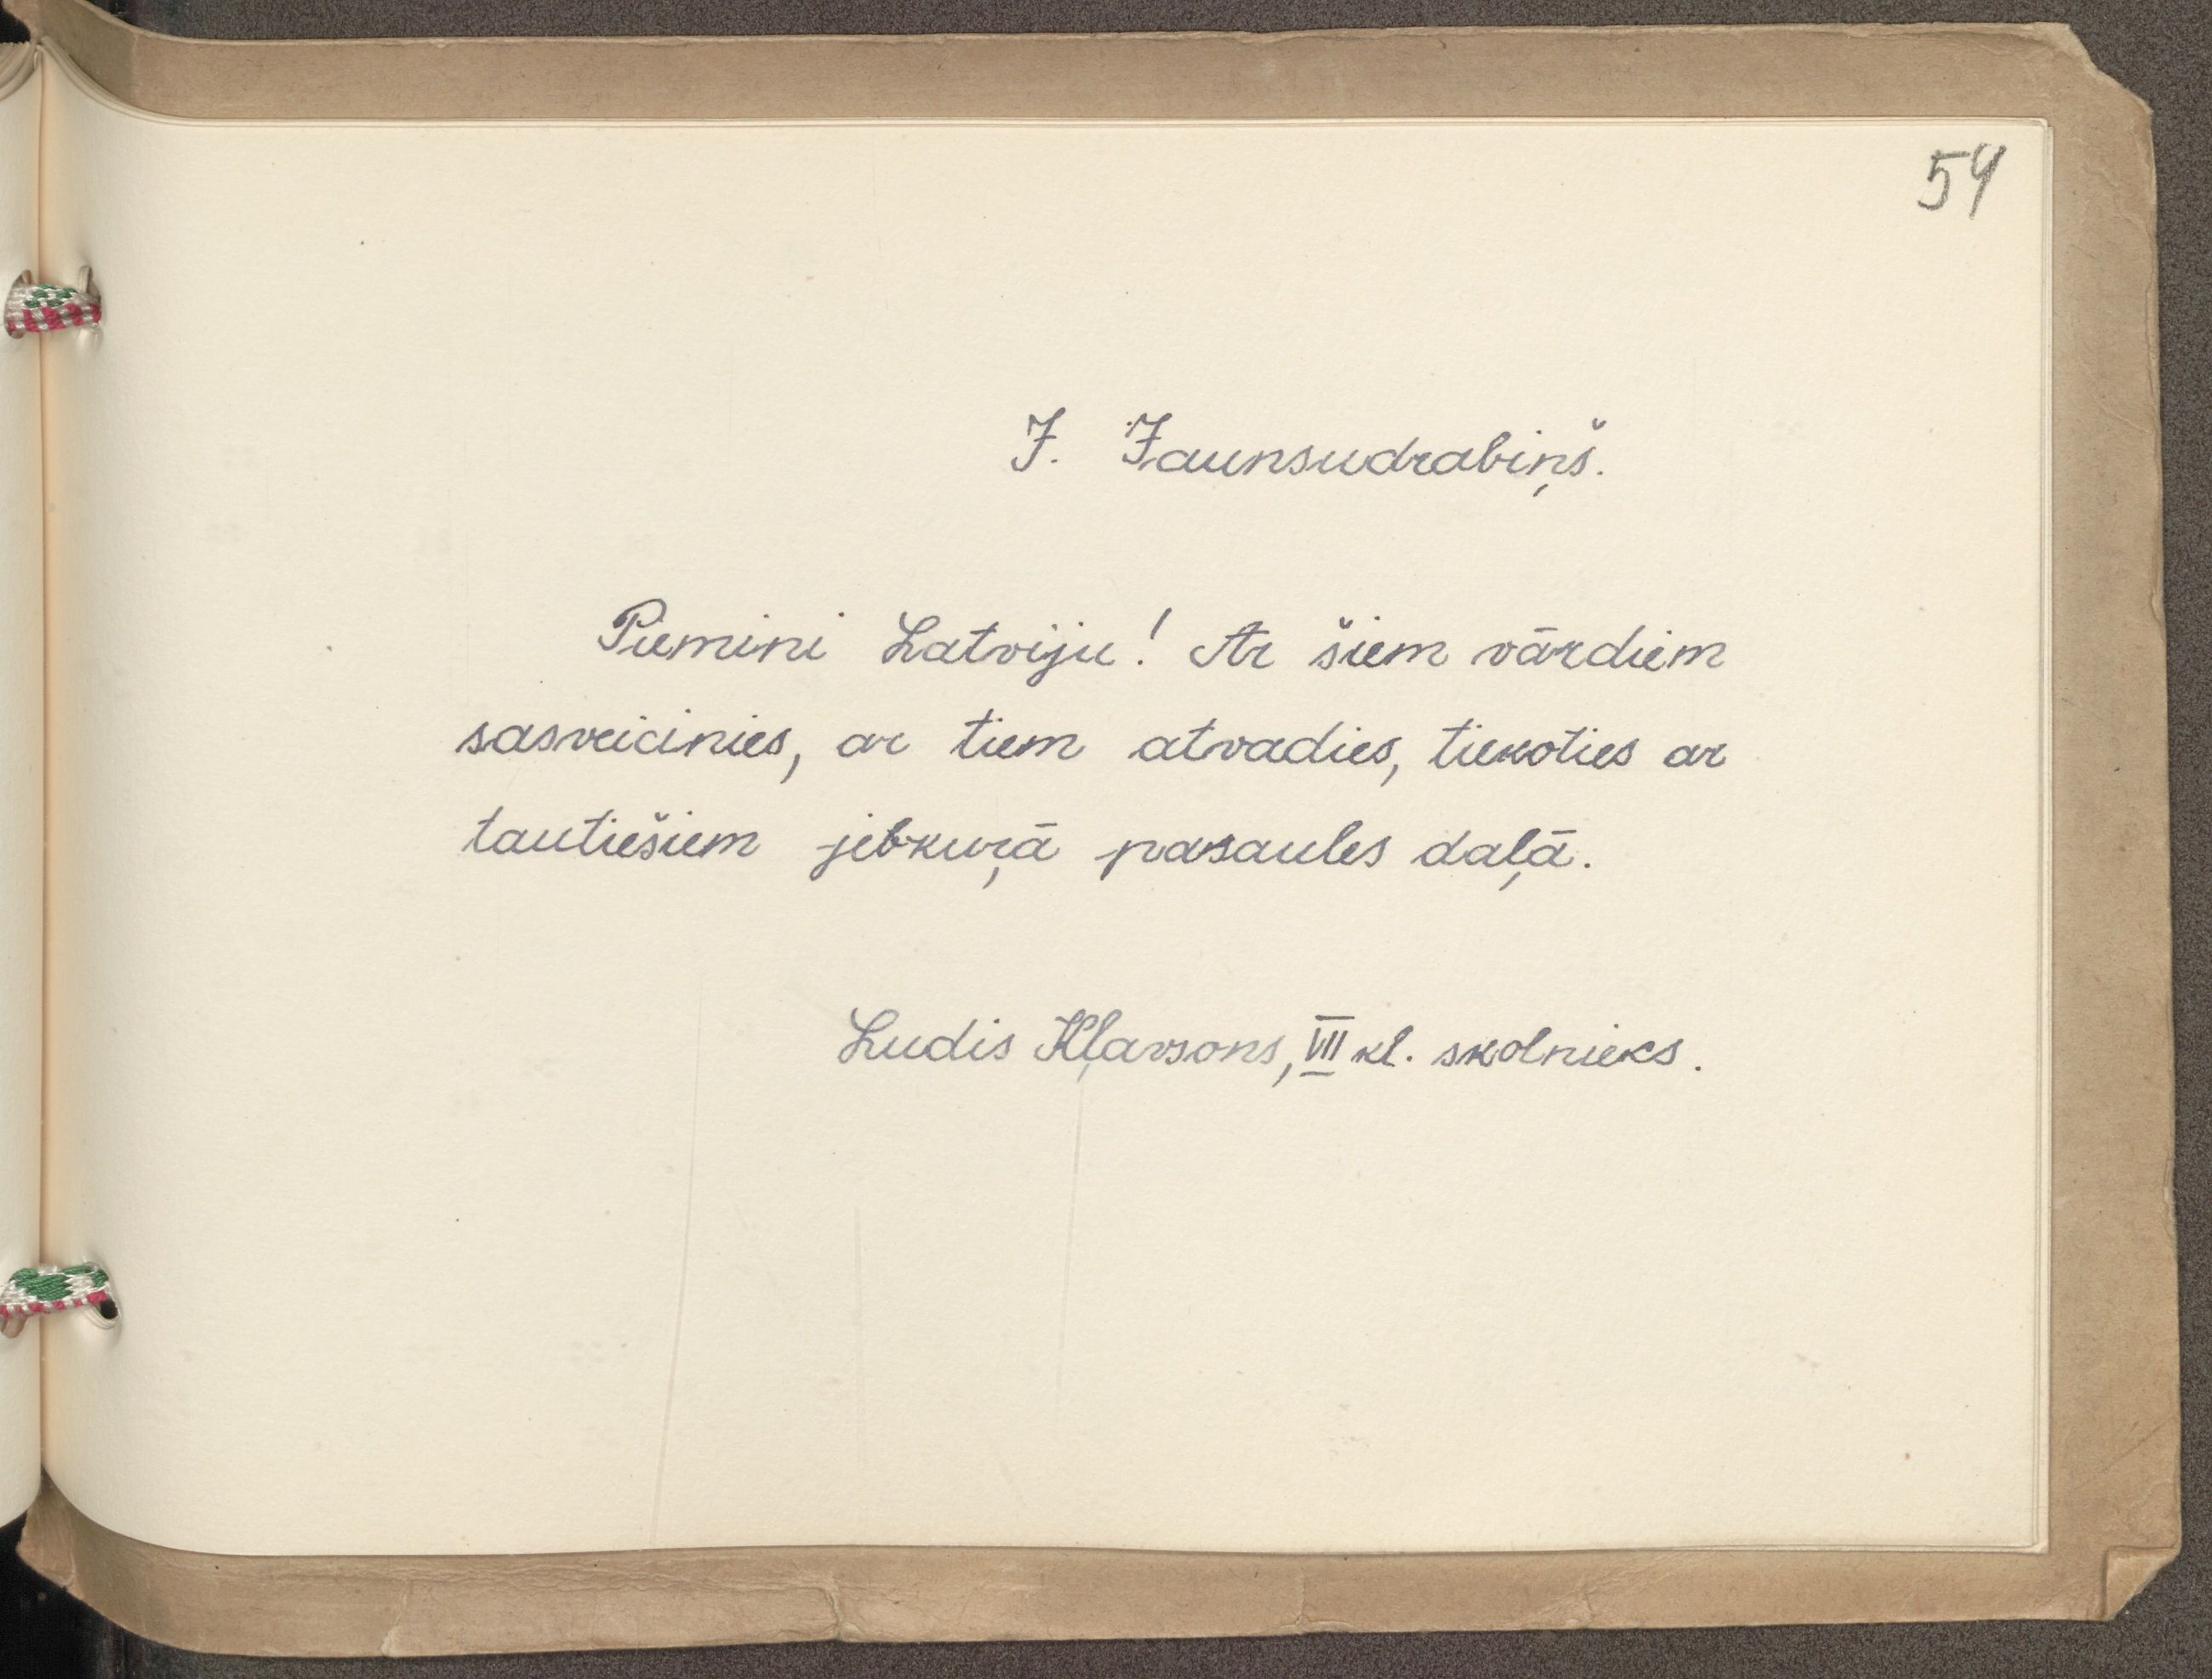 54
J. Jaunsudrabiņš.
Piemini Latviju! Ar šiem vārdiem
sasveicinies, ar tiem atvadies, tiekoties ar
tautiešiem jebkuŗā pasaules daļā.
Ludis Kļavsons, VII kl. skolnieks.